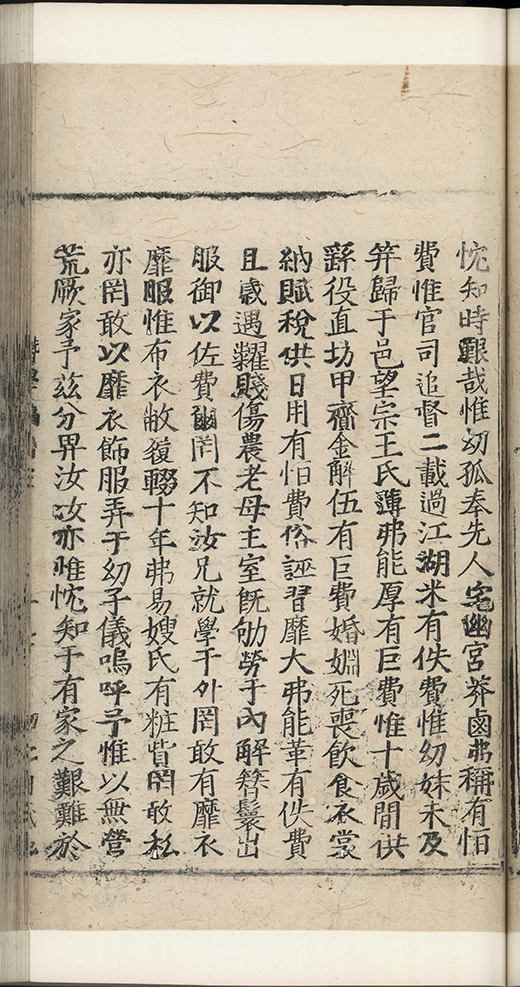 忱知時艱哉惟幼孤奉先人宅幽宮莽鹵弗稱有怕
費惟官司追督二載過江湖米有佚費惟幼妹未及
笄歸于邑望宗王氏薄弗能厚有巨費惟十歲間供
繇役直坊甲齎金解伍有巨費婚婣死喪飲食衣裳
納賦稅供日用有怕費俗誣習靡大弗能革有佚費
且歲遇糶賤傷農老母主室既劬勞于內解簪鬟出
服御以佐費罔不知汝兄就學于外罔敢有靡衣
靡服惟布衣敝履輟十年弗易嫂氏有粧皆罔敢私
亦罔敢以靡衣飾服弄于幼子儀嗚呼予惟以無營
荒厥家予茲分畀汝汝亦惟忱知于有家之艱難於